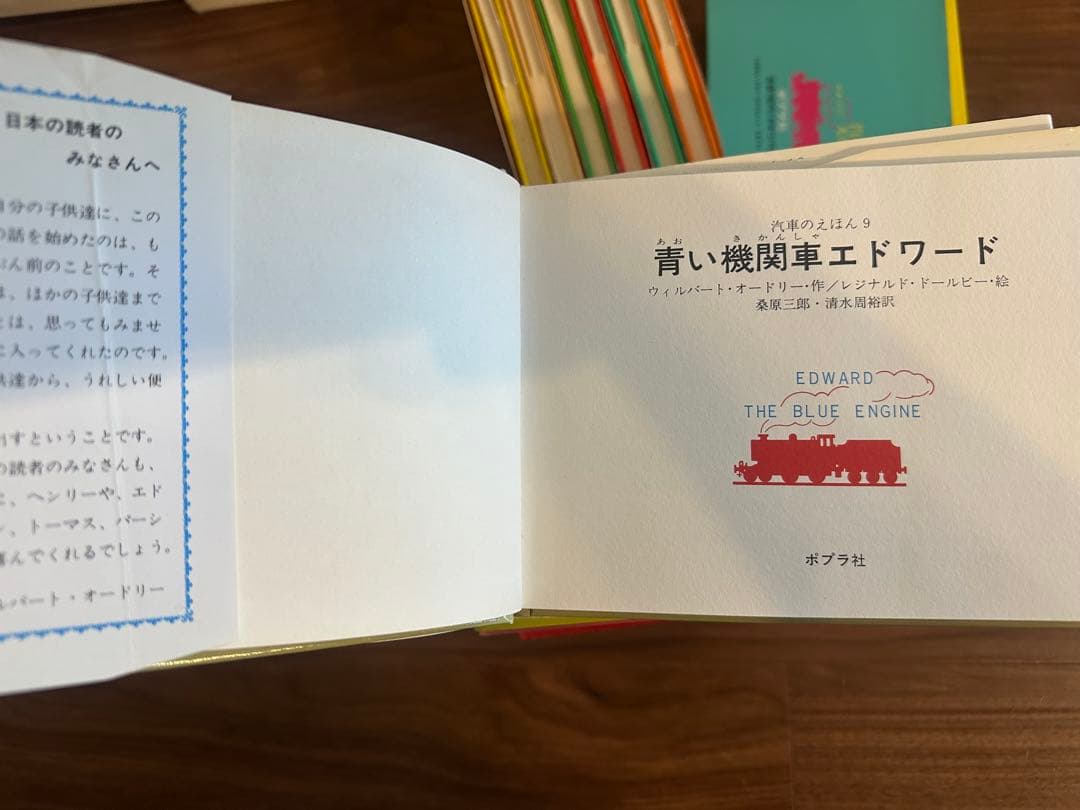 日本の読者の
みなさんへ
自分の子供達に、この
話を始めたのは、も
ぶん前のことです。そ
は、ほかの子供達まで
とは、思ってもみませ
に入ってくれたのです。
供達から、うれしい便
出すということです。
の読者のみなさんも、
に、ヘンリーや、エド
ン、トーマス、パーシ
喜んでくれるでしょう。
ルバート・オードリー
汽車のえほん9
あお きかんしゃ
青い機関車エドワード
ウィルバート・オードリー・作／レジナルド・ドールビー・絵
桑原三郎・清水周裕訳
EDWARD
THE BLUE ENGINE
ポプラ社